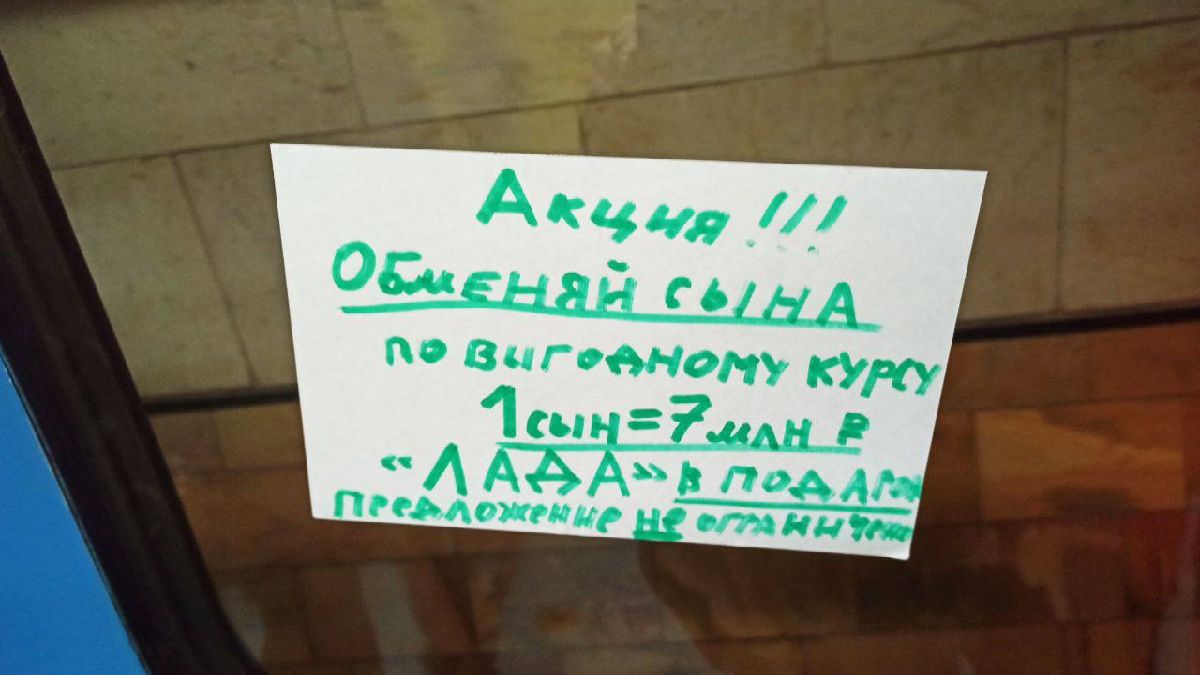 Акция!!!
Обменяй сына
по выгодному курсу
1 сын = 7 млн ₽
«ЛАДА» в подарок
Предложение не ограничено